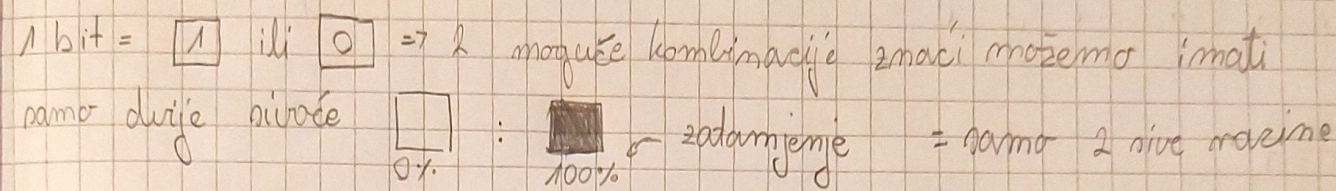 1 bit = 1 ili 0 => 2 moguće kombinacije znači možemo imati
samo dvije sivoće : zatamnjenje = samo 2 sive razine
0% 100%